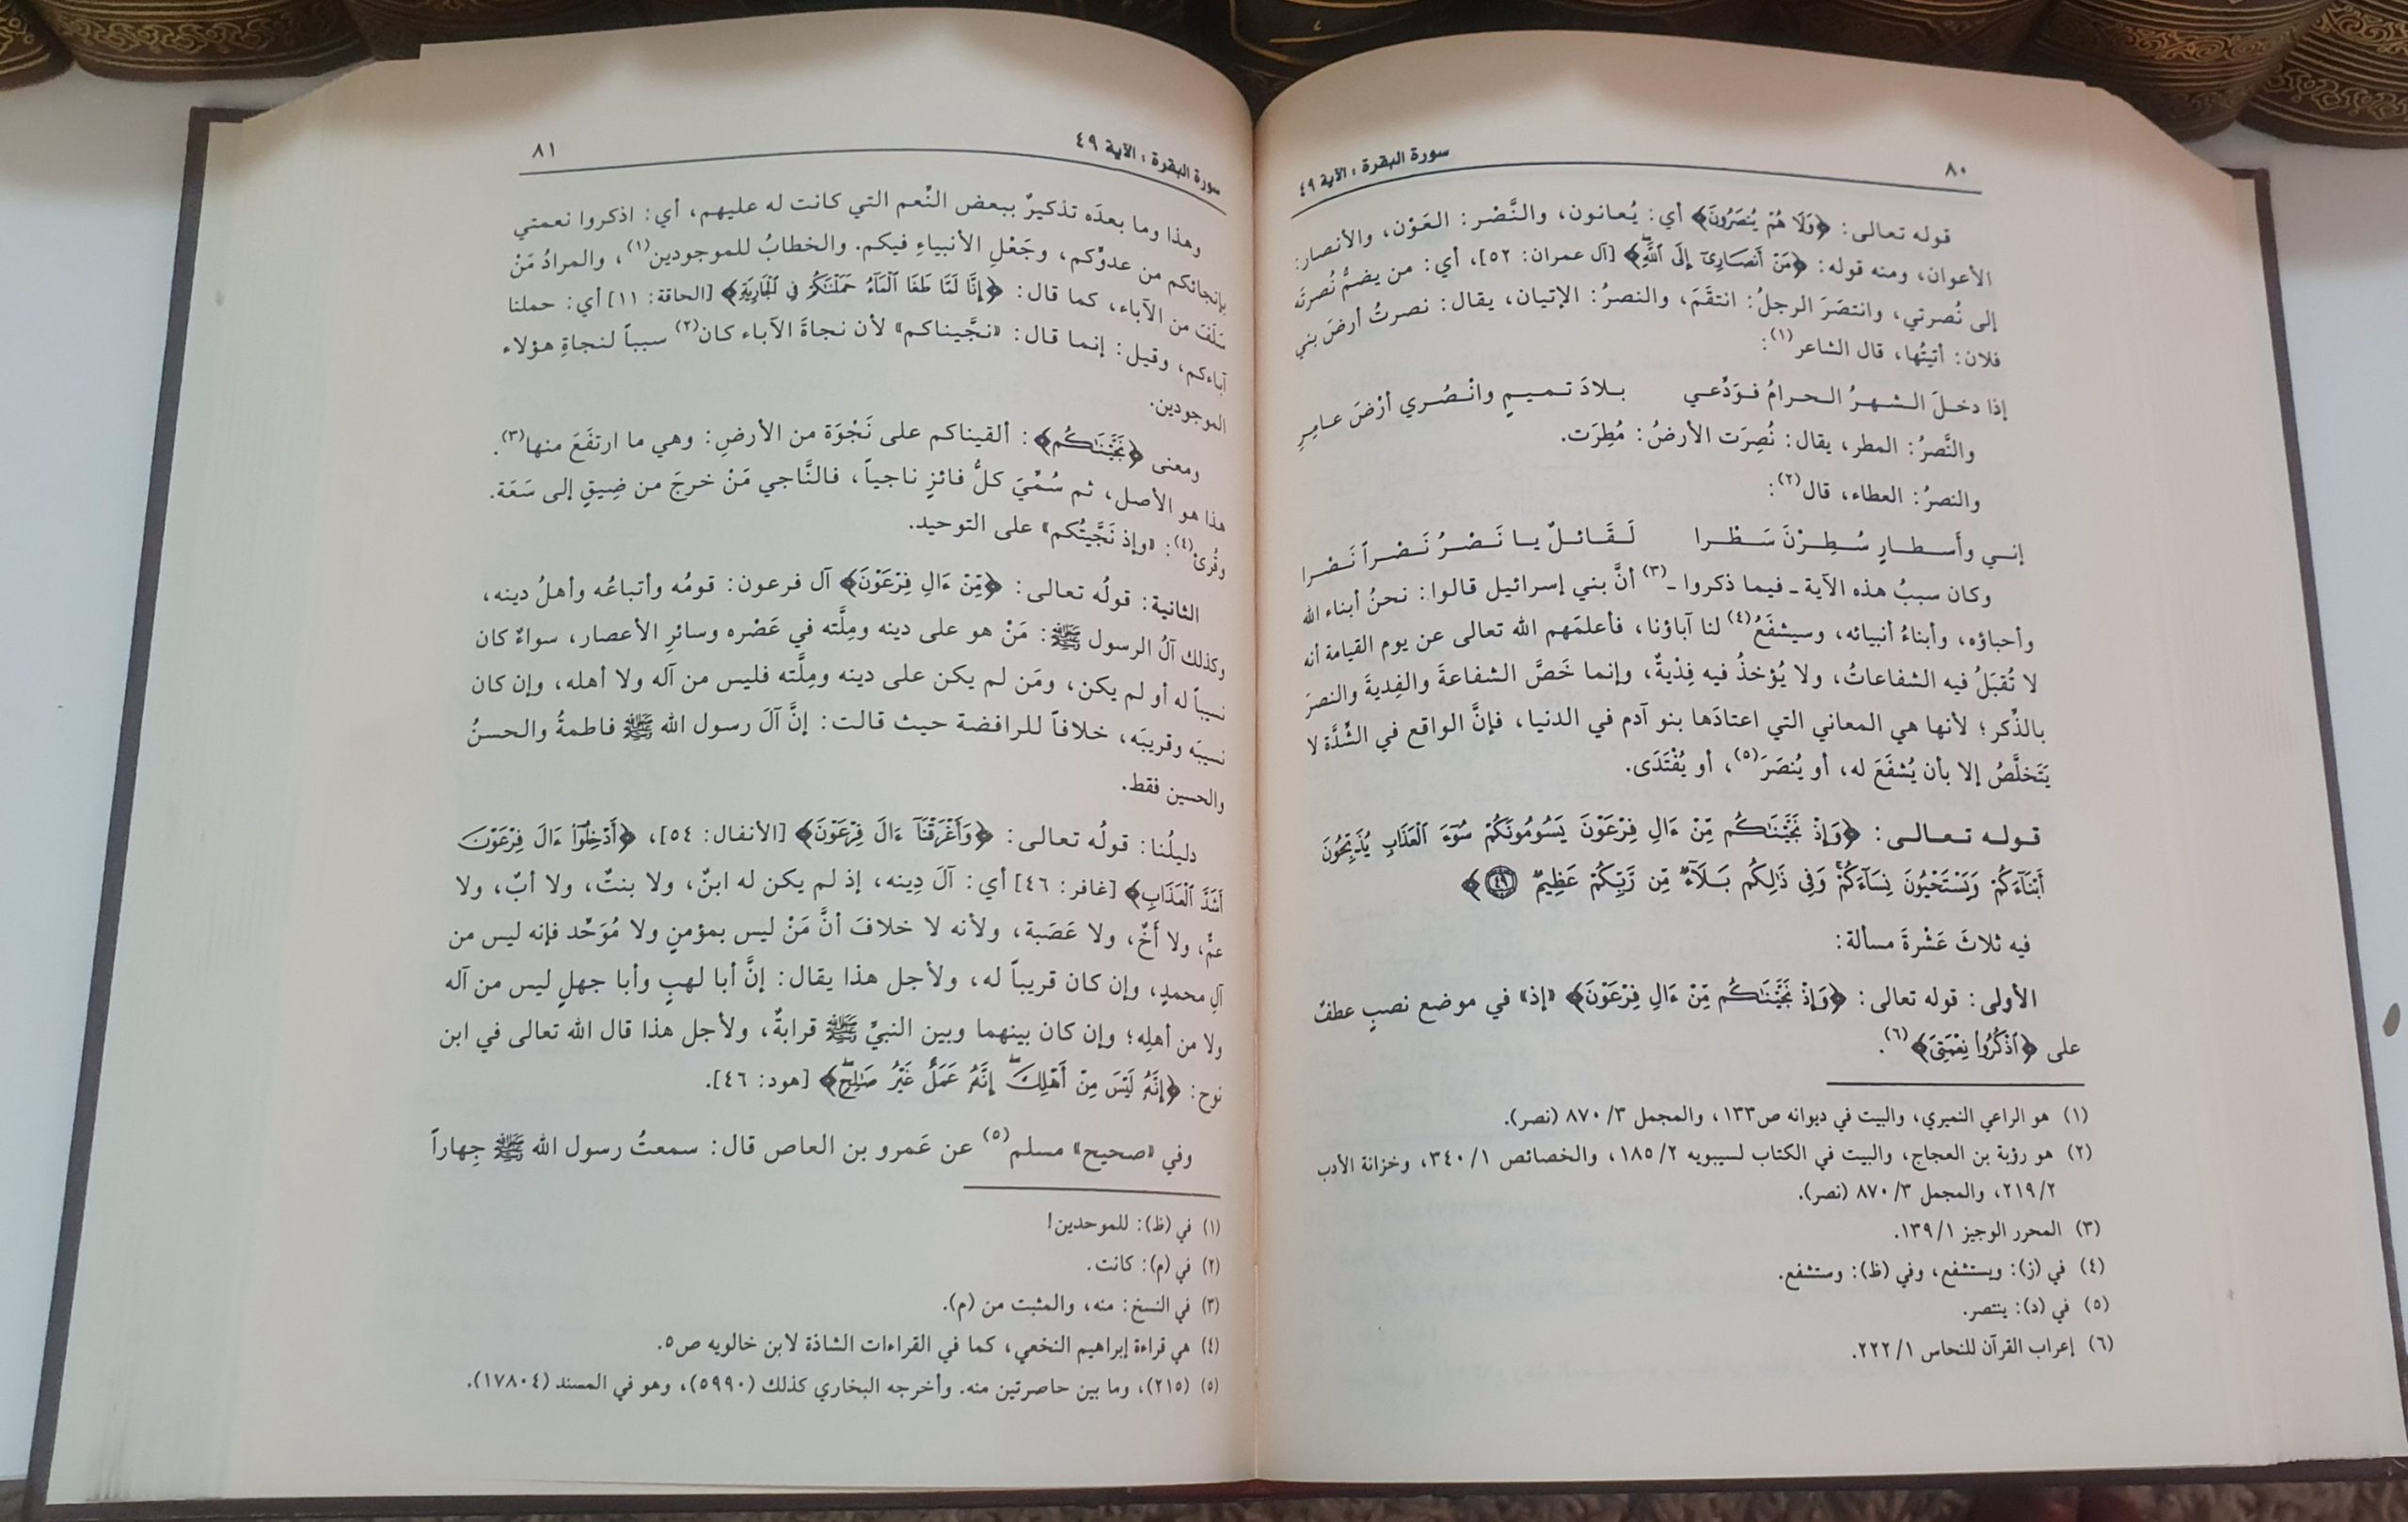 ٨٠
سورة البقرة : الآية ٤٩
قوله تعالى: ﴿وَلَا هُمْ يُنصَرُونَ﴾ أي: يُعانون، والنَّصْر: العَوْن، والأنصار:
الأعوان، ومنه قوله: ﴿مَنْ أَنصَارِىٓ إِلَى ٱللَّهِۖ﴾ [آل عمران: ٥٢]، أي: من يضمُّ نُصرتَه
إلى نُصرتي، وانتصَرَ الرجلُ: انتقَمَ، والنصرُ: الإتيان، يقال: نصرتُ أرضَ بني
فلان: أتيتُها، قال الشاعر(١):
إذا دخـلَ الـشـهـرُ الـحـرامُ فـوَدِّعـي بـلادَ تـمـيـمٍ وانْـصُـري أرْضَ عـامـرِ
والنَّصرُ: المطر، يقال: نُصِرَت الأرضُ: مُطِرَت.
والنصرُ: العطاء، قال(٢):
إنــي وأَســطــارٍ سُــطِــرْنَ سَــطْــرا لَــقَــائــلٌ يــا نَــصْــرُ نَــصْــراً نَــصْــرا
وكان سببُ هذه الآية ـ فيما ذكروا ـ(٣) أنَّ بني إسرائيل قالوا: نحنُ أبناء الله
وأحباؤه، وأبناءُ أنبيائه، وسيشفَعُ(٤) لنا آباؤنا، فأعلمَهم الله تعالى عن يوم القيامة أنه
لا تُقبَلُ فيه الشفاعاتُ، ولا يُؤخذُ فيه فِدْيةٌ، وإنما خَصَّ الشفاعةَ والفِديةَ والنصرَ
بالذِّكر؛ لأنها هي المعاني التي اعتادَها بنو آدم في الدنيا، فإنَّ الواقع في الشِّدَّة لا
يَتَخلَّصُ إلا بأن يُشفَعَ له، أو يُنصَرَ(٥)، أو يُفْتَدَى.
قـولـه تـعـالـى: ﴿وَإِذْ نَجَّيْنَـٰكُم مِّنْ ءَالِ فِرْعَوْنَ يَسُومُونَكُمْ سُوٓءَ ٱلْعَذَابِ يُذَبِّحُونَ
أَبْنَآءَكُمْ وَيَسْتَحْيُونَ نِسَآءَكُمْۚ وَفِى ذَٰلِكُم بَـلَآءٌ مِّن رَّبِّكُمْ عَظِيمٌ ٤٩﴾
فيه ثلاثَ عَشْرةَ مسألة:
الأولى: قوله تعالى: ﴿وَإِذْ نَجَّيْنَـٰكُم مِّنْ ءَالِ فِرْعَوْنَ﴾ «إذ» في موضع نصبٍ عطفٌ
على ﴿ٱذْكُرُوا۟ نِعْمَتِىَ﴾(٦).
(١) هو الراعي النميري، والبيت في ديوانه ص١٣٣، والمجمل ٣/ ٨٧٠ (نصر).
(٢) هو رؤبة بن العجاج، والبيت في الكتاب لسيبويه ٢/ ١٨٥، والخصائص ١/ ٣٤٠، وخزانة الأدب
٢/ ٢١٩، والمجمل ٣/ ٨٧٠ (نصر).
(٣) المحرر الوجيز ١/ ١٣٩.
(٤) في (ز): ويستشفع، وفي (ظ): وستشفع.
(٥) في (د): ينتصر.
(٦) إعراب القرآن للنحاس ١/ ٢٢٢.
سورة البقرة : الآية ٤٩
٨١
وهذا وما بعدَه تذكيرٌ ببعض النِّعم التي كانت له عليهم، أي: اذكروا نعمتي
بإنجائكم من عدوِّكم، وجَعْلِ الأنبياءِ فيكم. والخطابُ للموجودين(١)، والمرادُ مَنْ
سَلَفَ من الآباء، كما قال: ﴿إِنَّا لَمَّا طَغَا ٱلْمَآءُ حَمَلْنَـٰكُمْ فِى ٱلْجَارِيَةِ﴾ [الحاقة: ١١] أي: حملنا
آباءكم، وقيل: إنما قال: «نجَّيناكم» لأن نجاةَ الآباء كان(٢) سبباً لنجاةِ هؤلاء
الموجودين.
ومعنى ﴿نَجَّيْنَـٰكُم﴾: ألقيناكم على نَجْوَة من الأرضِ: وهي ما ارتفَعَ منها(٣).
هذا هو الأصل، ثم سُمِّيَ كلُّ فائزٍ ناجياً، فالنَّاجي مَنْ خرجَ من ضِيقٍ إلى سَعَة.
وقُرئ(٤): «وإذ نَجَّيتُكم» على التوحيد.
الثانية: قولُه تعالى: ﴿مِّنْ ءَالِ فِرْعَوْنَ﴾ آل فرعون: قومُه وأتباعُه وأهلُ دينه،
وكذلك آلُ الرسول ﷺ: مَنْ هو على دينه ومِلَّته في عَصْره وسائرِ الأعصار، سواءٌ كان
نسيباً له أو لم يكن، ومَن لم يكن على دينه ومِلَّته فليس من آله ولا أهله، وإن كان
نسيبَه وقريبَه، خلافاً للرافضة حيث قالت: إنَّ آلَ رسول الله ﷺ فاطمةُ والحسنُ
والحسين فقط.
دليلُنا: قولُه تعالى: ﴿وَأَغْرَقْنَآ ءَالَ فِرْعَوْنَ﴾ [الأنفال: ٥٤]، ﴿أَدْخِلُوٓا۟ ءَالَ فِرْعَوْنَ
أَشَدَّ ٱلْعَذَابِ﴾ [غافر: ٤٦] أي: آلَ دِينه، إذ لم يكن له ابنٌ، ولا بنتٌ، ولا أبٌ، ولا
عمٌّ، ولا أَخٌ، ولا عَصَبة، ولأنه لا خلافَ أنَّ مَنْ ليس بمؤمنٍ ولا مُوَحِّد فإنه ليس من
آلِ محمدٍ، وإن كان قريباً له، ولأجل هذا يقال: إنَّ أبا لهبٍ وأبا جهلٍ ليس من آله
ولا من أهلِه؛ وإن كان بينهما وبين النبيِّ ﷺ قرابةٌ، ولأجل هذا قال الله تعالى في ابن
نوح: ﴿إِنَّهُۥ لَيْسَ مِنْ أَهْلِكَۖ إِنَّهُۥ عَمَلٌ غَيْرُ صَـٰلِحٍۖ﴾ [هود: ٤٦].
وفي «صحيح» مسلم(٥) عن عَمرو بن العاص قال: سمعتُ رسول الله ﷺ جِهاراً
(١) في (ظ): للموحدين!
(٢) في (م): كانت.
(٣) في النسخ: منه، والمثبت من (م).
(٤) هي قراءة إبراهيم النخعي، كما في القراءات الشاذة لابن خالويه ص٥.
(٥) (٢١٥)، وما بين حاصرتين منه. وأخرجه البخاري كذلك (٥٩٩٠)، وهو في المسند (١٧٨٠٤).